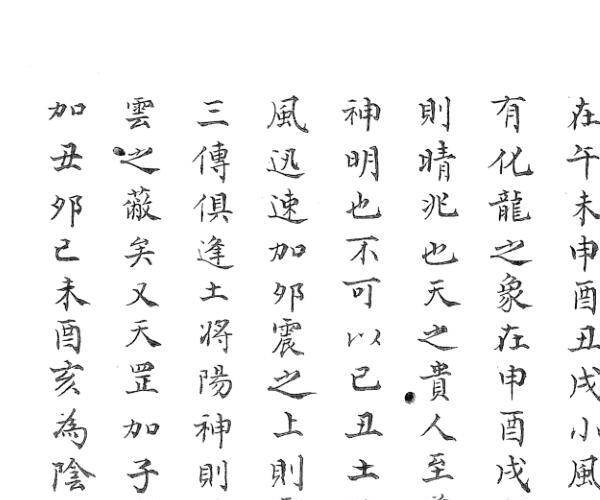 在午未申酉丑戌小風
有化龍之象在申酉戌
則晴兆也天之貴人至
神明也不可以已丑土
風迅速加夘震之上則
三傳俱逢土將陽神則
雲之蔽矣又天罡加子
加丑夘已未酉亥為陰